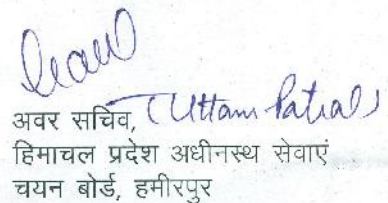 अवर सचिव, (Uttam Patial)
हिमाचल प्रदेश अधीनस्थ सेवाएं
चयन बोर्ड, हमीरपुर